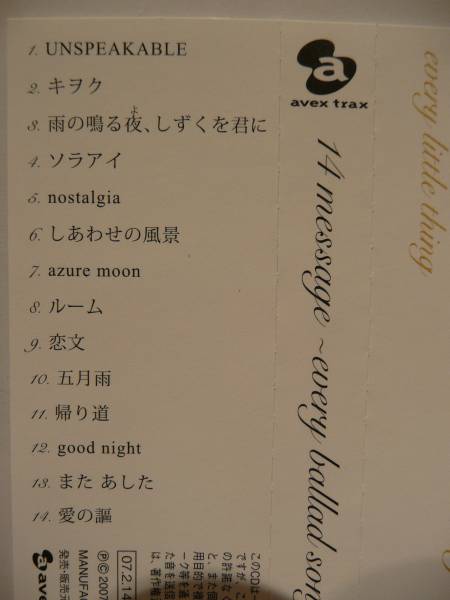 1. UNSPEAKABLE
2. キヲク
3. 雨の鳴る夜、しずくを君に
よ
4. ソラアイ
5. nostalgia
6. しあわせの風景
7. azure moon
8. ルーム
9. 恋文
10. 五月雨
11. 帰り道
12. good night
13. また あした
14. 愛の謳
a
avex trax
14 message ~every ballad son
every little thing
このCDは
ですが、こ
の許諾なく
と、また個
用目的で複
ーク等を通
た音を送信
は、著作権
07.2.14
Ⓟ©2007
MANUFA
発売・販売元
a ave